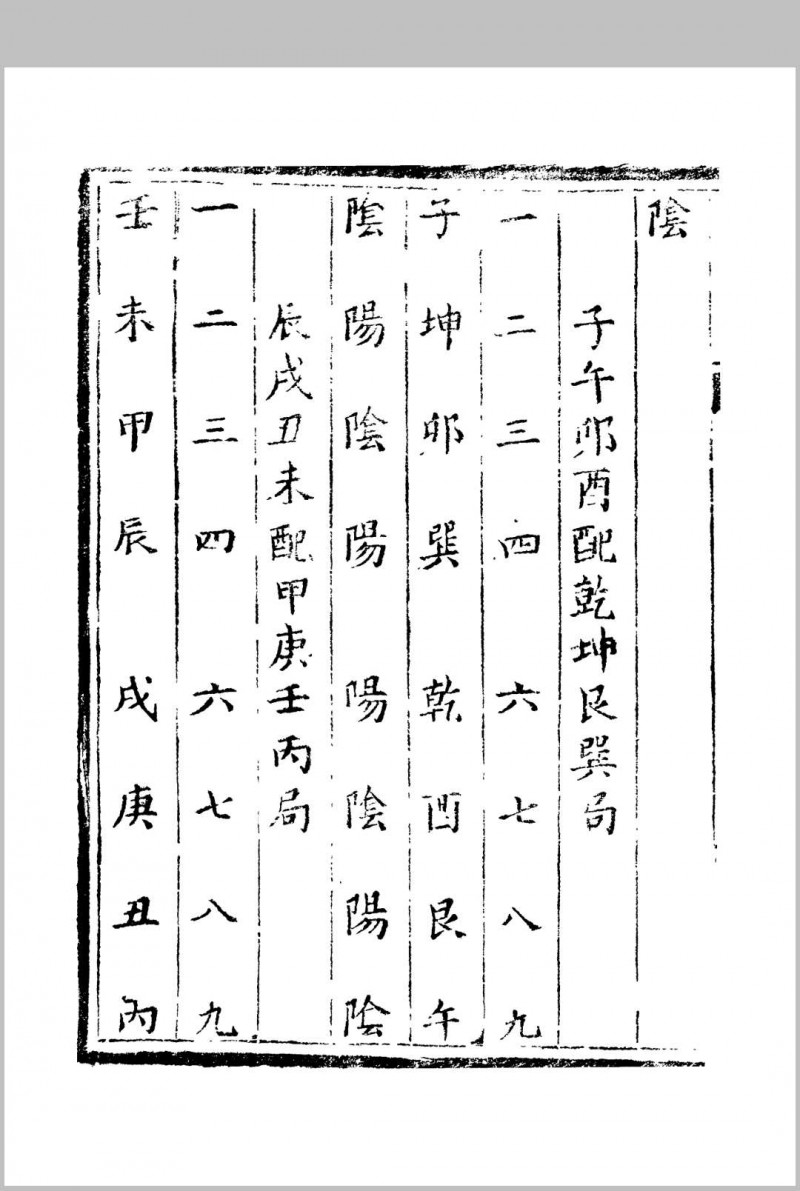 陰
子午卯酉配乾坤艮巽局
一二三四六七八九
子坤卯巽乾酉艮午
陰陽陰陽陽陰陽陰
辰戌丑未配甲庚壬丙局
一二三四六七八九
壬未甲辰戌庚丑丙